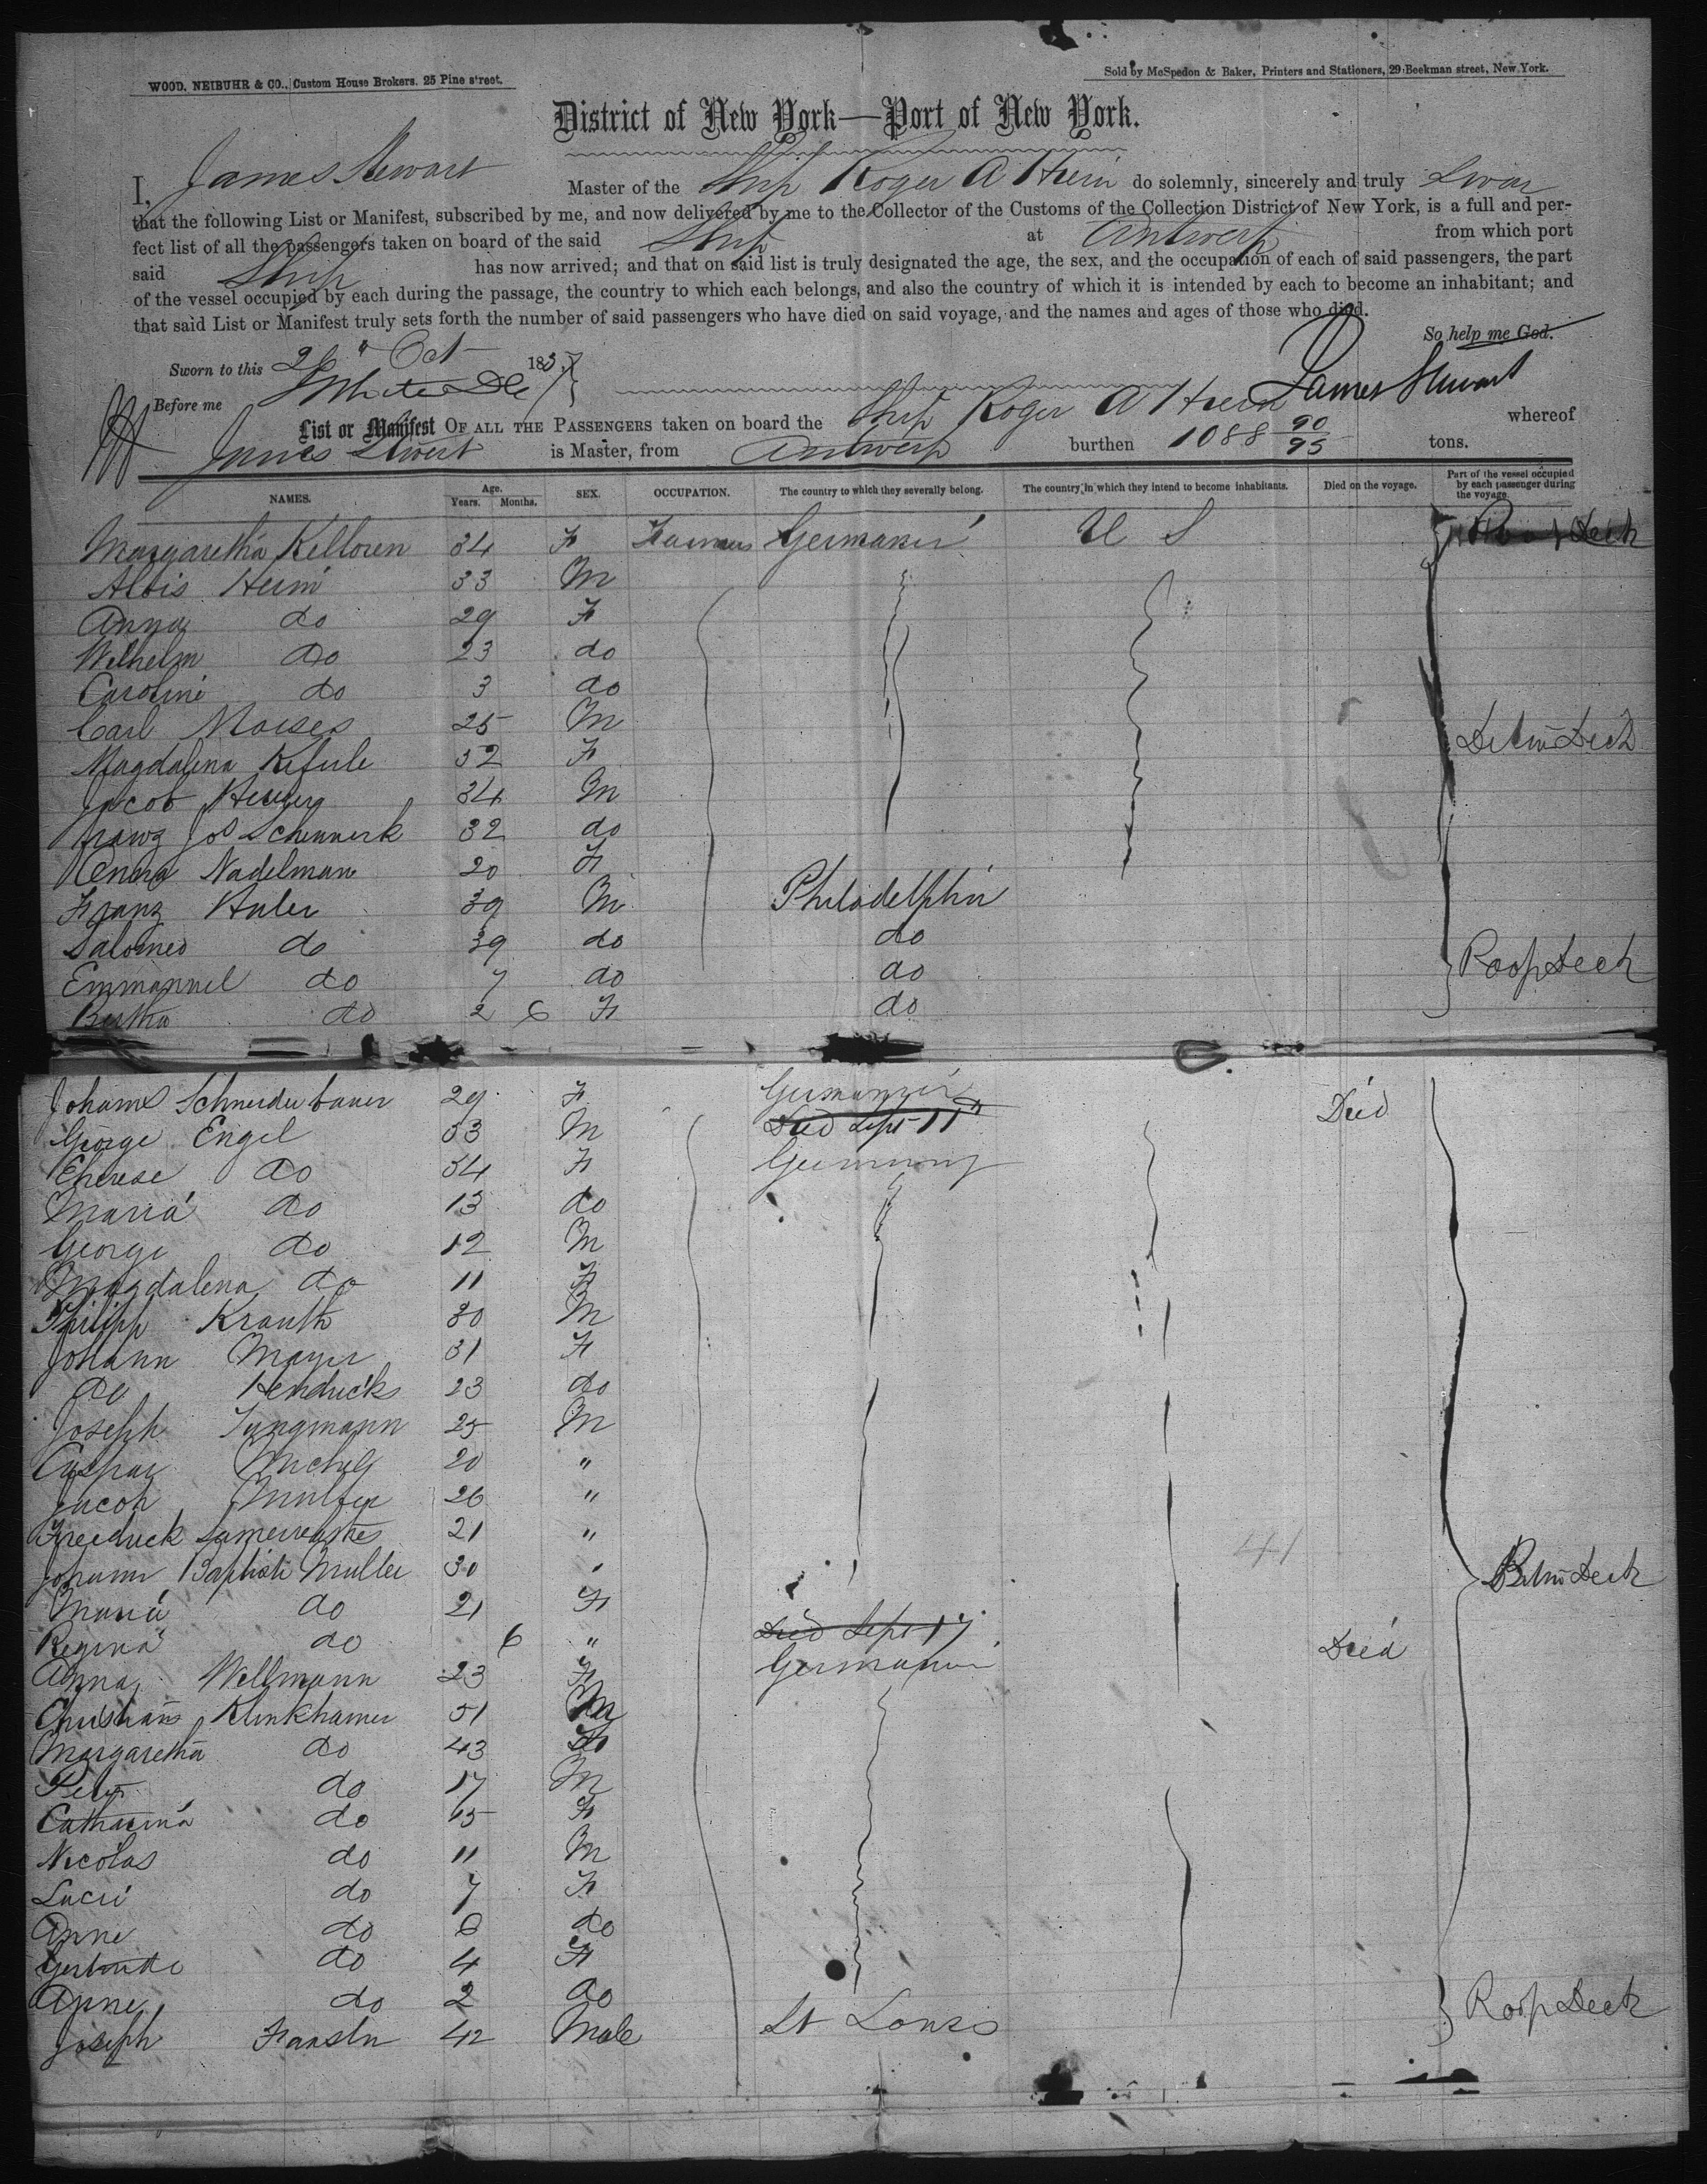 WOOD, NEIBUHR & CO., Custom House Brokers. 25 Pine street.
Sold by McSpedon & Baker, Printers and Stationers, 29 Beekman street, New York.
District of New York—Port of New York.
I, James Stewart Master of the Ship Roger A Hiern do solemnly, sincerely and truly Swear
that the following List or Manifest, subscribed by me, and now delivered by me to the Collector of the Customs of the Collection District of New York, is a full and per-
fect list of all the passengers taken on board of the said Ship at Antwerp from which port
said Ship has now arrived; and that on said list is truly designated the age, the sex, and the occupation of each of said passengers, the part
of the vessel occupied by each during the passage, the country to which each belongs, and also the country of which it is intended by each to become an inhabitant; and
that said List or Manifest truly sets forth the number of said passengers who have died on said voyage, and the names and ages of those who died.
So help me God.
Sworn to this Oct 185
Before me
James Stewart
List or Manifest OF ALL THE PASSENGERS taken on board the Ship Roger A Hiern whereof
James Stewart is Master, from Antwerp burthen 1088 90/95 tons.
NAMES. Age. Years. Months. SEX. OCCUPATION. The country to which they severally belong. The country in which they intend to become inhabitants. Died on the voyage. Part of the vessel occupied by each passenger during the voyage.
Margaretha 34 F Farmers U S
Alois 33 M
Anna do 29 F
Wilhelm do 23 do
Caroline do 3 do
Carl Moises 25 M
Magdalena F Deck
Jacob 34 M
Franz Jos 32 do
Nadelman 20 F
Franz Huler 39 M Philadelphia
Salomeo do 39 do do
Emmanuel do 7 do do Poop Deck
Bertha do 2 6 F do
Schneiderbauer 29 F Died
George Engel 53 M Died Sept 11
Therese do F Germany
Maria do 13 do
George do 12 M
Magdalena do 11 F
Philipp Krauth 30 M
Johann Mayer 31 F
do Hendricks 23 do
Joseph Jungmann 25 M
Caspar 20 "
Jacob 26 "
Friedrick 21 "
Johann Baptiste Muller 30 " 41 Deck
Maria do 21 F
Regina do 6 " Died Sept 17 Died
Anna Wellmann 23 F
Klinkhamer 51 M
Margaretha do 43 F
Peter do 17 M
Catharina do 15 F
Nicolas do 11 M
Luci do 7 F
Anne do 6 do
Gertrude do 4 F
Anne do 2 do
Joseph 42 Male St Louis Poop Deck